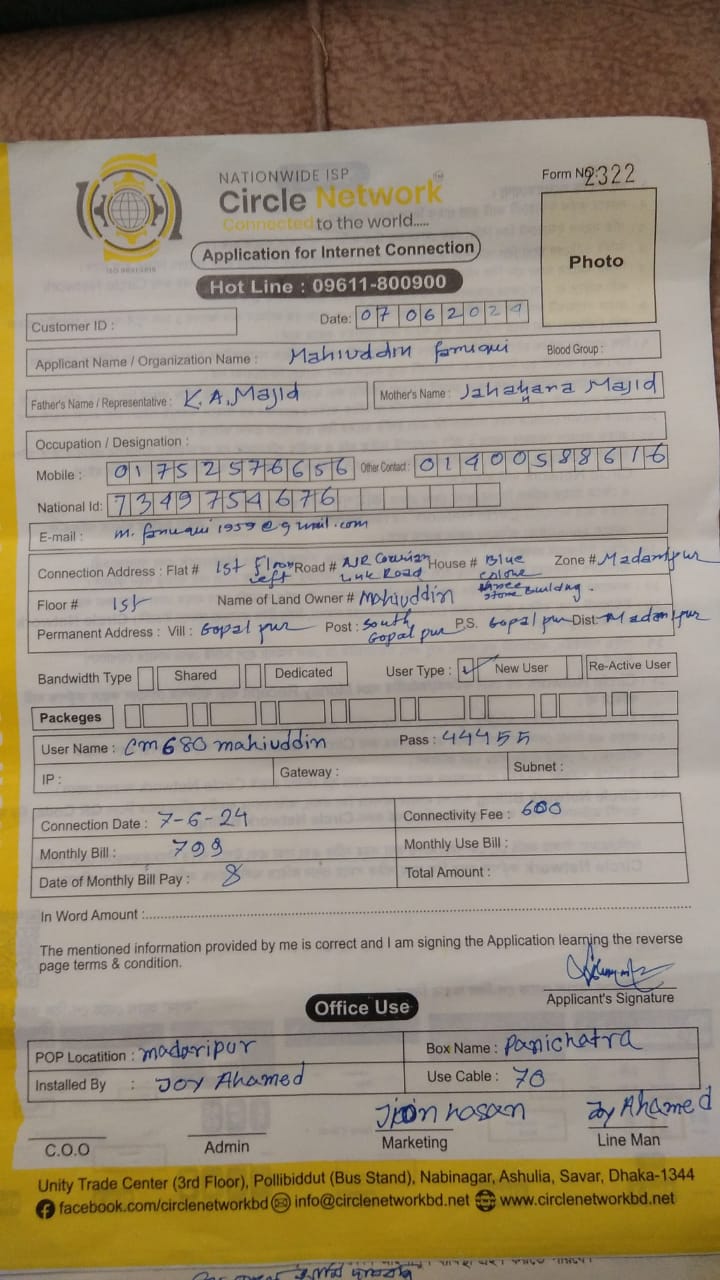 NATIONWIDE ISP
Circle Network
Connected to the world.....
ISO 9001:2015
Form No. 2322
Photo
Application for Internet Connection
Hot Line : 09611-800900
Customer ID :
Date: 07 06 2024
Applicant Name / Organization Name : Mahiuddin Faruqui Blood Group :
Father's Name / Representative : K.A. Majid Mother's Name : Jahanara Majid
Occupation / Designation :
Mobile : 01752576656 Other Contact : 01400588616
National Id: 7349754676
E-mail : m.faruqui1959@gmail.com
Connection Address : Flat # 1st Floor Left Road # Link Road House # Blue three Building. Zone # Madaripur
Floor # 1st Name of Land Owner # Mahiuddin
Permanent Address : Vill : Gopalpur Post : South Gopalpur P.S. Gopalpur Dist: Madaripur
Bandwidth Type Shared Dedicated User Type : ✓ New User Re-Active User
Packeges
User Name : cm680mahiuddin Pass : 44455
IP : Gateway : Subnet :
Connection Date : 7-6-24 Connectivity Fee : 600
Monthly Bill : 799 Monthly Use Bill :
Date of Monthly Bill Pay : 8 Total Amount :
In Word Amount :
The mentioned information provided by me is correct and I am signing the Application learning the reverse
page terms & condition.
Applicant's Signature
Office Use
POP Locatition : madaripur Box Name : Panichatra
Installed By : Joy Ahamed Use Cable : 70
hasan Joy Ahamed
C.O.O Admin Marketing Line Man
Unity Trade Center (3rd Floor), Pollibiddut (Bus Stand), Nabinagar, Ashulia, Savar, Dhaka-1344
facebook.com/circlenetworkbd info@circlenetworkbd.net www.circlenetworkbd.net